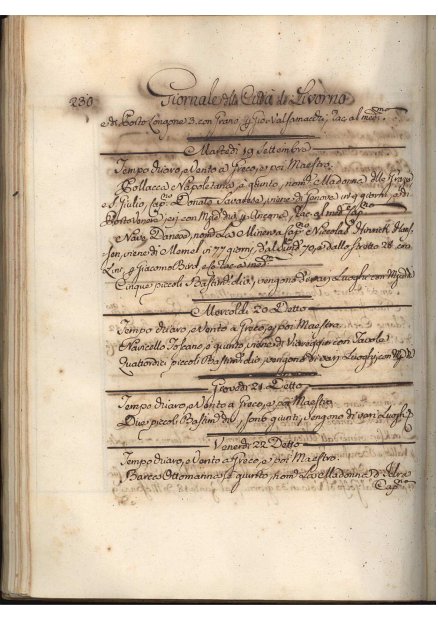 230 Giornale della Città di Livorno
di Porto Longone 3. con grano
Martedì 19 Settembre
Tempo chiaro, e Vento a Greco, e poi Maestro.
Pollacca Napoletana, è giunto, nom.ta Madonna delle Grazie
e S. Giulio, Cap.no Donato Savarese, viene di Genova in 4 giorni, e di
Porto Venere
Nave Danese, nom.ta La Minerva Cap.no Niccolas
viene di Memel in 77 giorni, dal Sund 70, e dallo Stretto 28. con
Lino,
Cinque piccoli Bastim.ti vengono di varj Luoghi con
Mercoldì 20 Detto
Tempo chiaro, e Vento a Greco, e poi Maestro.
Navicello Toscano, è giunto, viene di Viareggio con Tavole
Quattordici piccoli Bastim.ti vengono di varj Luoghi, con
Giovedì 21. Detto
Tempo chiaro, e Vento a Greco, e poi Maestro
Due piccoli Bastim.ti sono giunti, vengono di varj Luoghi
Venerdì 22 Detto
Tempo chiaro, e Vento a Greco, e poi Maestro.
Barca Ottomanna, è giunto, nom.ta La Madonna d'Idra
Cap.no